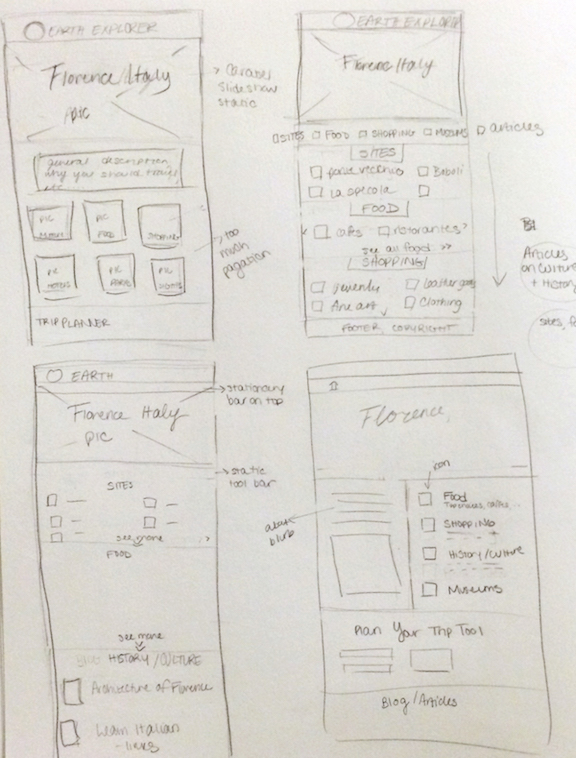 EARTH EXPLORER
Florence/Italy
pic
slideshow
static
general description
why you should travel
etc
PIC
PIC
FOOD
SHOPPING
PIC
PIC
PIC
too
much
pagation
TRIP PLANNER
EARTH EXPLORER
Florence/Italy
SITES
FOOD
SHOPPING
MUSEUMS
articles
SITES
ponte vecchio
Baboli
La specola
FOOD
cafes
ristorantes
see all food >>
SHOPPING
Jewelry
leather goods
Fine art
Clothing
FOOTER, COPYRIGHT
Articles
on culture
+ History
EARTH
Florence Italy
PIC
stationary
bar on top
static
tool bar
SITES
see more
FOOD
see more
HISTORY/CULTURE
Architecture of Florence
Learn Italian
- links
Florence,
about
blurb
icon
Food
SHOPPING
History/Culture
Museums
Plan Your Trip Tool
Blog/Articles